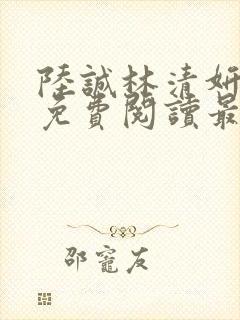 陸誠林清妍
免費閱讀最
邵寵友